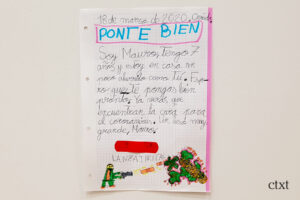 18 de marzo de 2020,
PONTE BIEN
Soy Mauro, tengo 7
años y estoy en casa un
poco aburrido como tú. Espe-
ro que te pongas bien
pronto. Ya verás que
encuentran la cura para
el coronavirus. Un beso muy
grande, Mauro.
ctxt